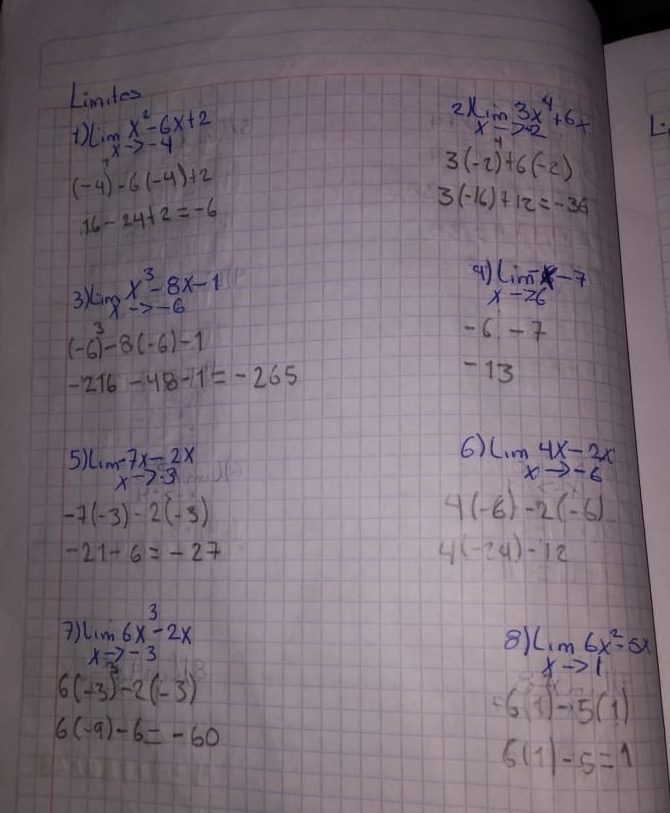 Limites
1) Lim x²-6x+2
x → -4
(-4)²-6(-4)+2
16-24+2=-6
2) Lim 3x⁴+6x
x → -2
3(-2)⁴+6(-2)
3(-16)+12=-36
3) Lim x³-8x-1
x → -6
(-6)³-8(-6)-1
-216-48-1=-265
4) Lim -x-7
-6-7
-13
5) Lim -7x-2x
x → -3
-7(-3)-2(-3)
-21-6=-27
6) Lim 4x-2x
x → -6
4(-6)-2(-6)
4(-24)-12
7) Lim 6x³-2x
x → -3
6(-3)³-2(-3)
6(-9)-6=-60
8) Lim 6x²-5x
x → 1
6(1)-5(1)
6(1)-5=1